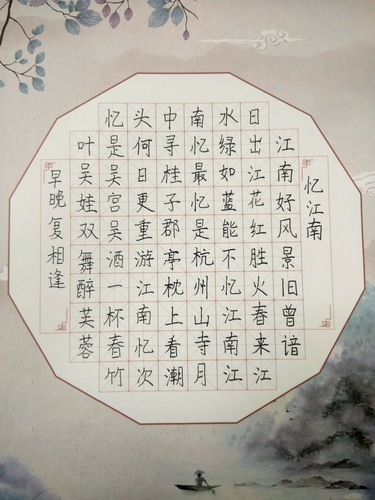 忆江南
江南好风景旧曾谙
日出江花红胜火春来江
水绿如蓝能不忆江南江
南忆最忆是杭州山寺月
中寻桂子郡亭枕上看潮
头何日更重游江南忆次
忆是吴宫吴酒一杯春竹
叶吴娃双舞醉芙蓉
早晚复相逢